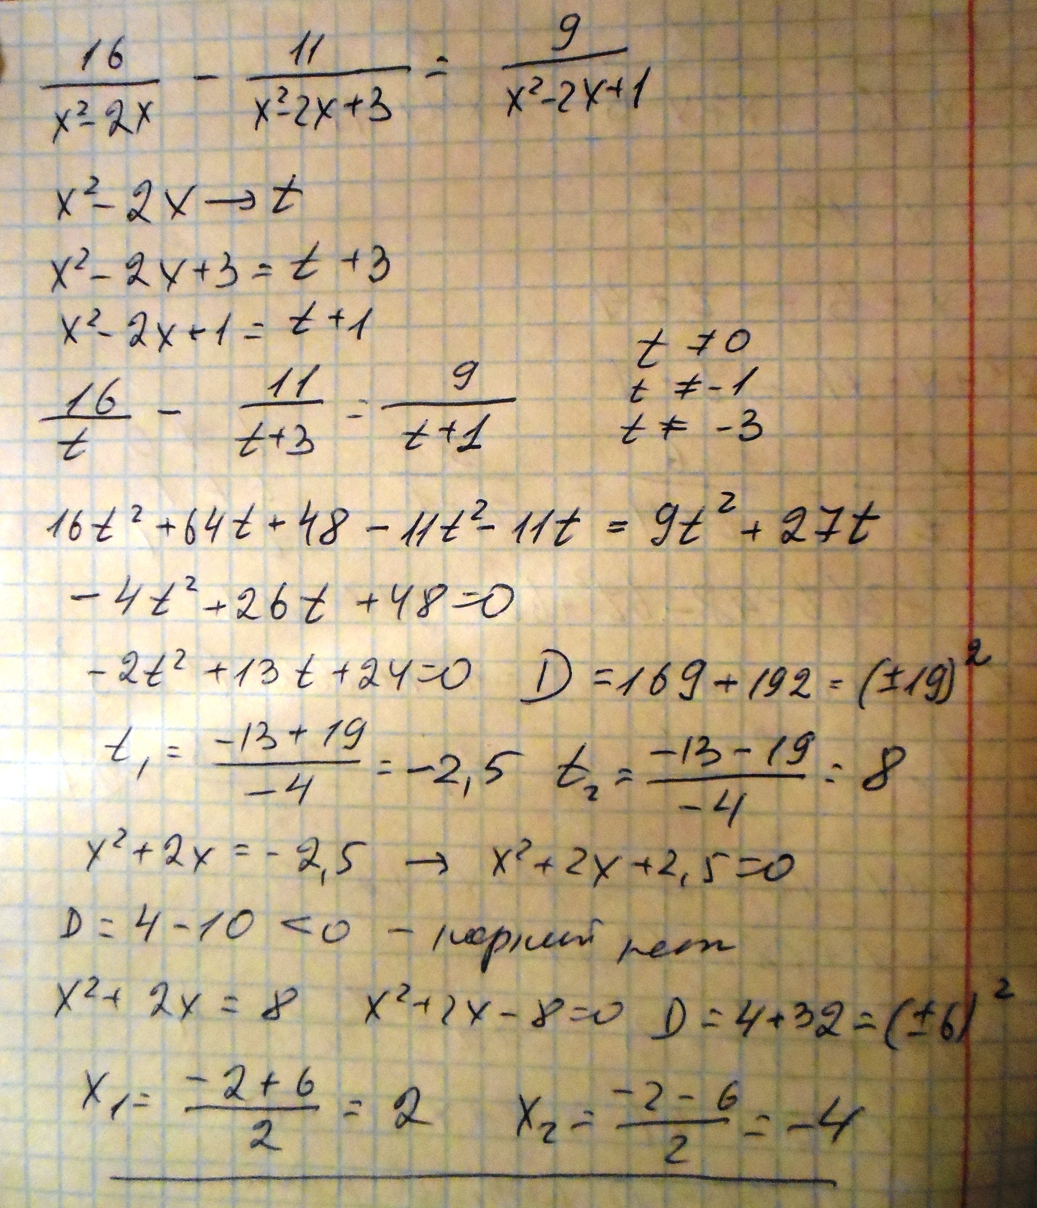 16/(x²-2x) - 11/(x²-2x+3) = 9/(x²-2x+1)
x²-2x → t
x²-2x+3 = t+3
x²-2x+1 = t+1
t ≠ 0
t ≠ -1
t ≠ -3
16/t - 11/(t+3) = 9/(t+1)
16t²+64t+48-11t²-11t = 9t²+27t
-4t²+26t+48=0
-2t²+13t+24=0 D=169+192=(±19)²
t₁ = (-13+19)/(-4) = -2,5 t₂ = (-13-19)/(-4) = 8
x²+2x = -2,5 → x²+2x+2,5=0
D = 4-10 <0 - корней нет
x²+2x = 8 x²+2x-8=0 D=4+32=(±6)²
x₁ = (-2+6)/2 = 2 x₂ = (-2-6)/2 = -4